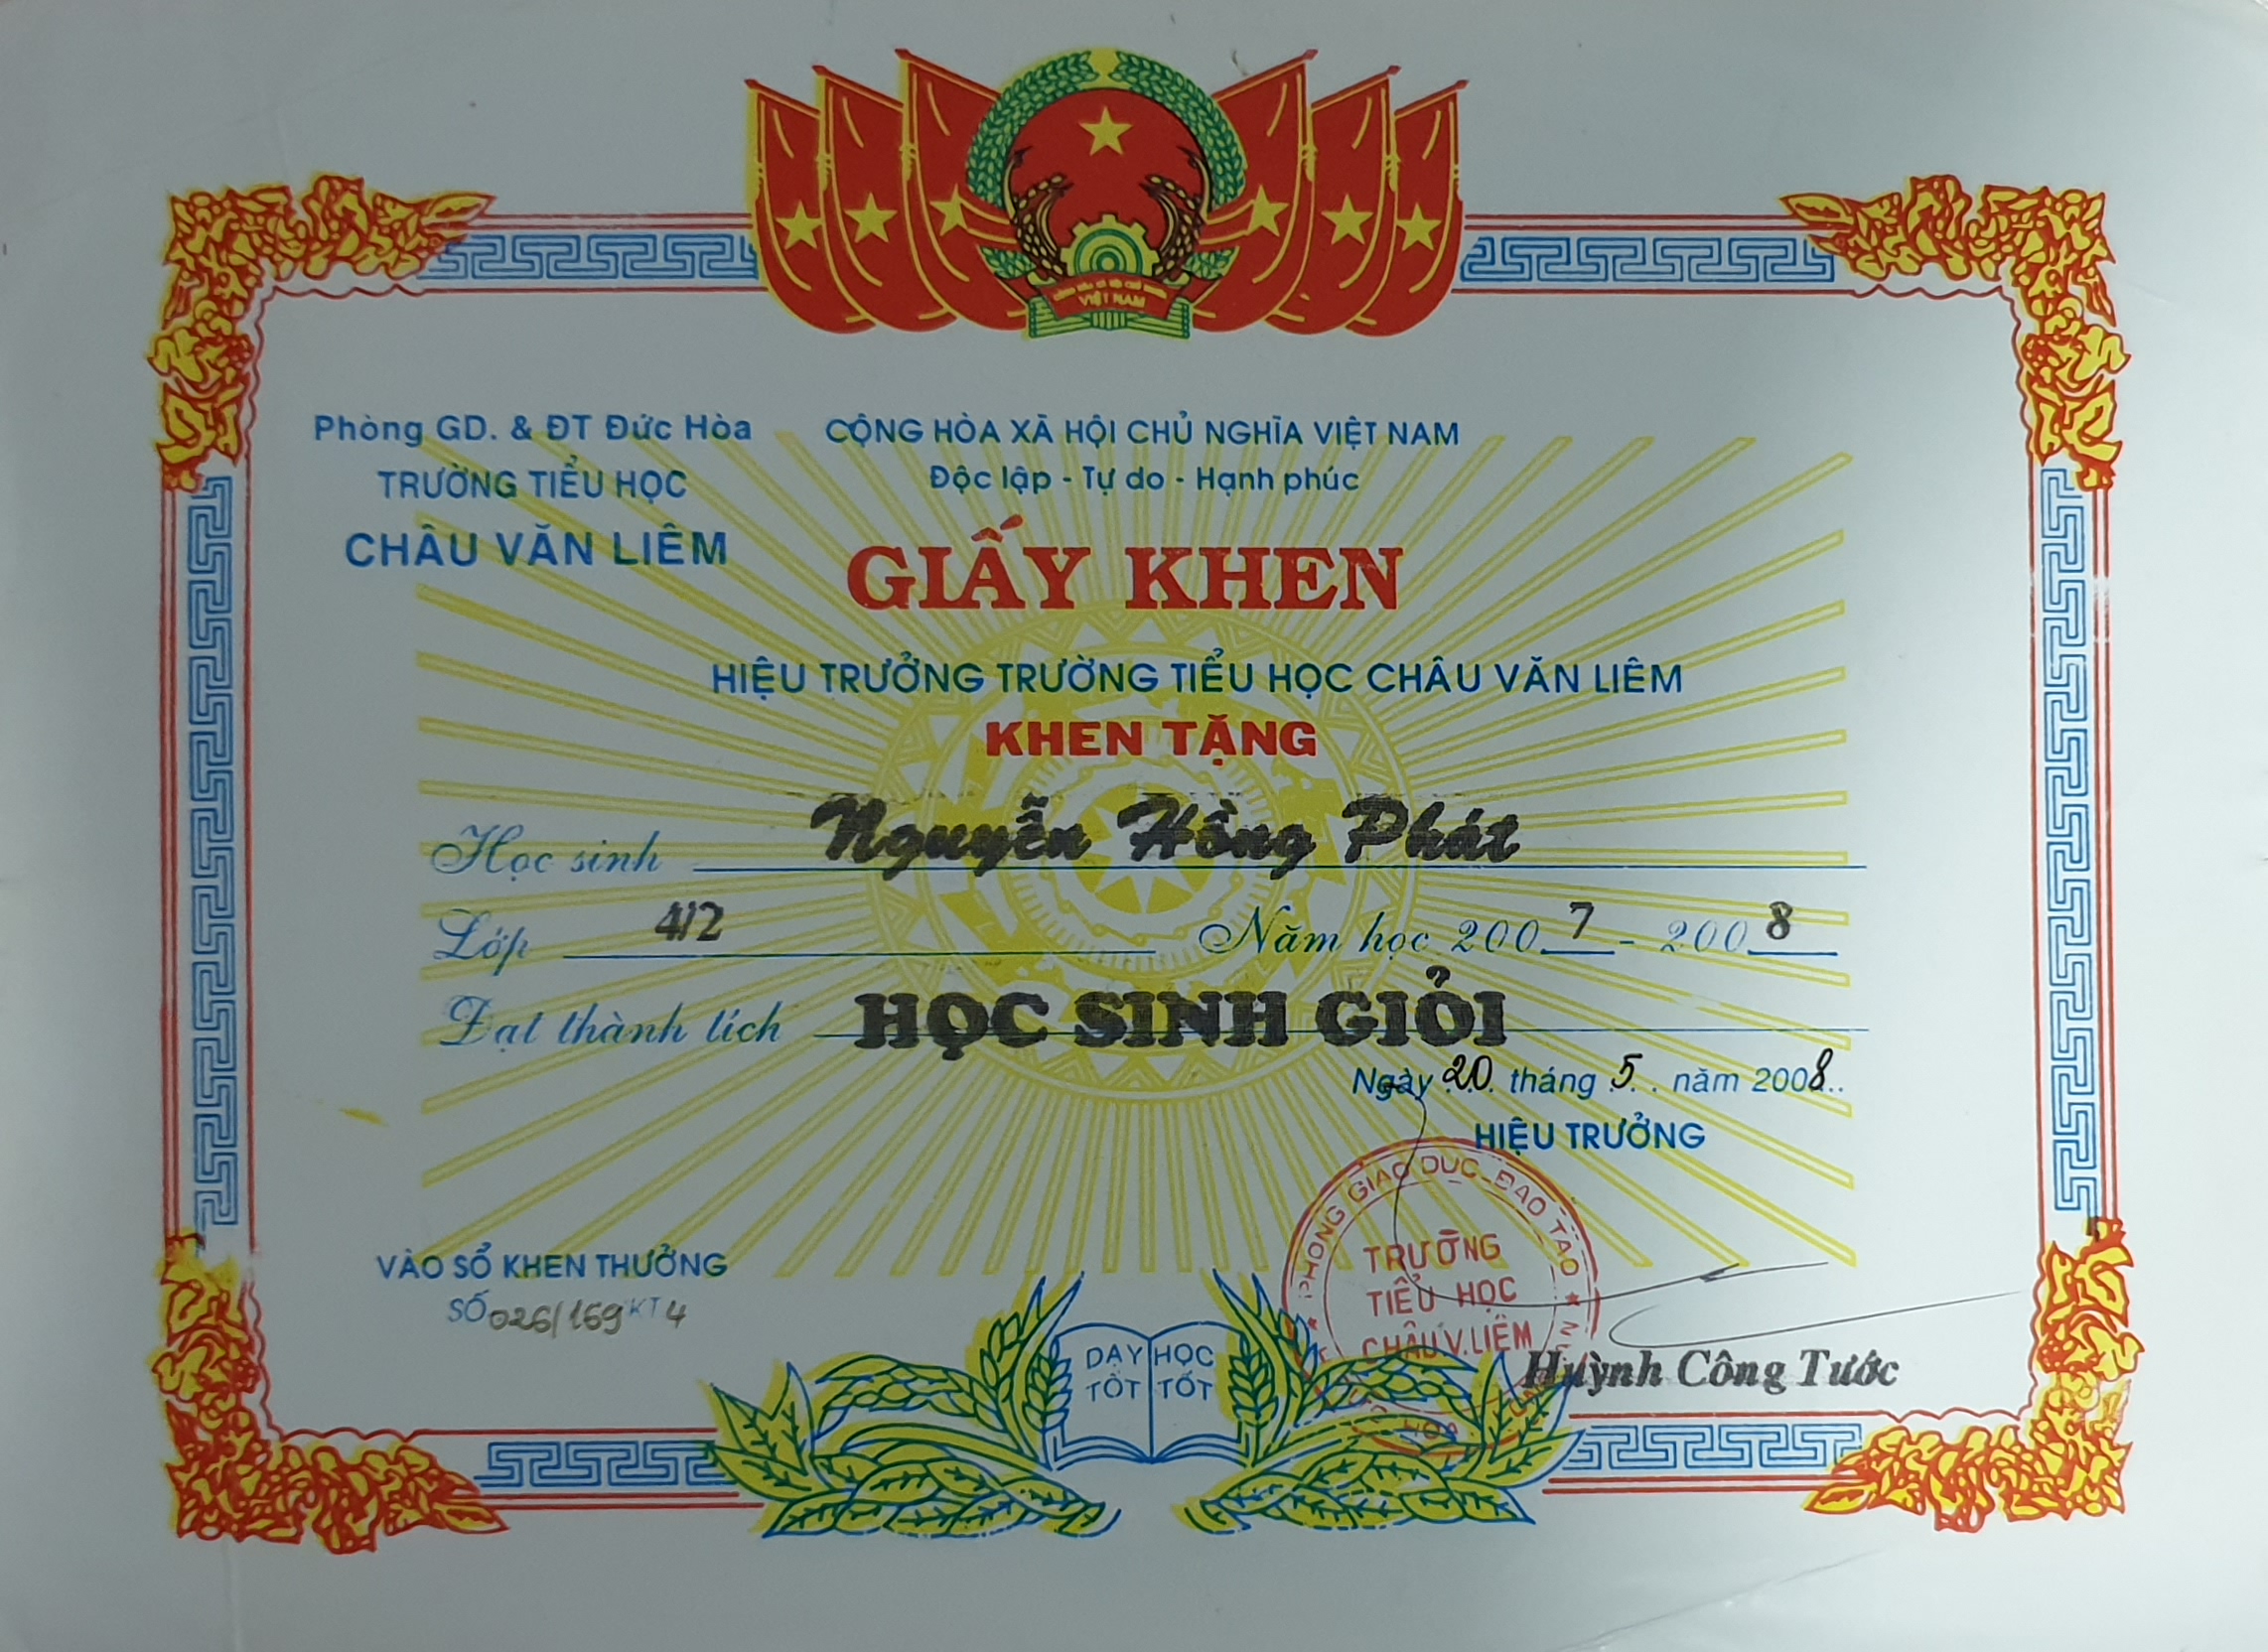 CỘNG HÒA XÃ HỘI CHỦ NGHĨA
VIỆT NAM
Phòng GD. & ĐT Đức Hòa
TRƯỜNG TIỂU HỌC
CHÂU VĂN LIÊM
CỘNG HÒA XÃ HỘI CHỦ NGHĨA VIỆT NAM
Độc lập - Tự do - Hạnh phúc
GIẤY KHEN
HIỆU TRƯỞNG TRƯỜNG TIỂU HỌC CHÂU VĂN LIÊM
KHEN TẶNG
Học sinh Nguyễn Hồng Phát
Lớp 4/2 Năm học 2007 - 2008
Đạt thành tích HỌC SINH GIỎI
Ngày 20 tháng 5 năm 2008
HIỆU TRƯỞNG
PHÒNG GIÁO DỤC ĐÀO TẠO
TRƯỜNG
TIỂU HỌC
CHÂU V.LIÊM
Huỳnh Công Tước
VÀO SỔ KHEN THƯỞNG
SỐ 026/169 KT 4
DẠY TỐT
HỌC TỐT